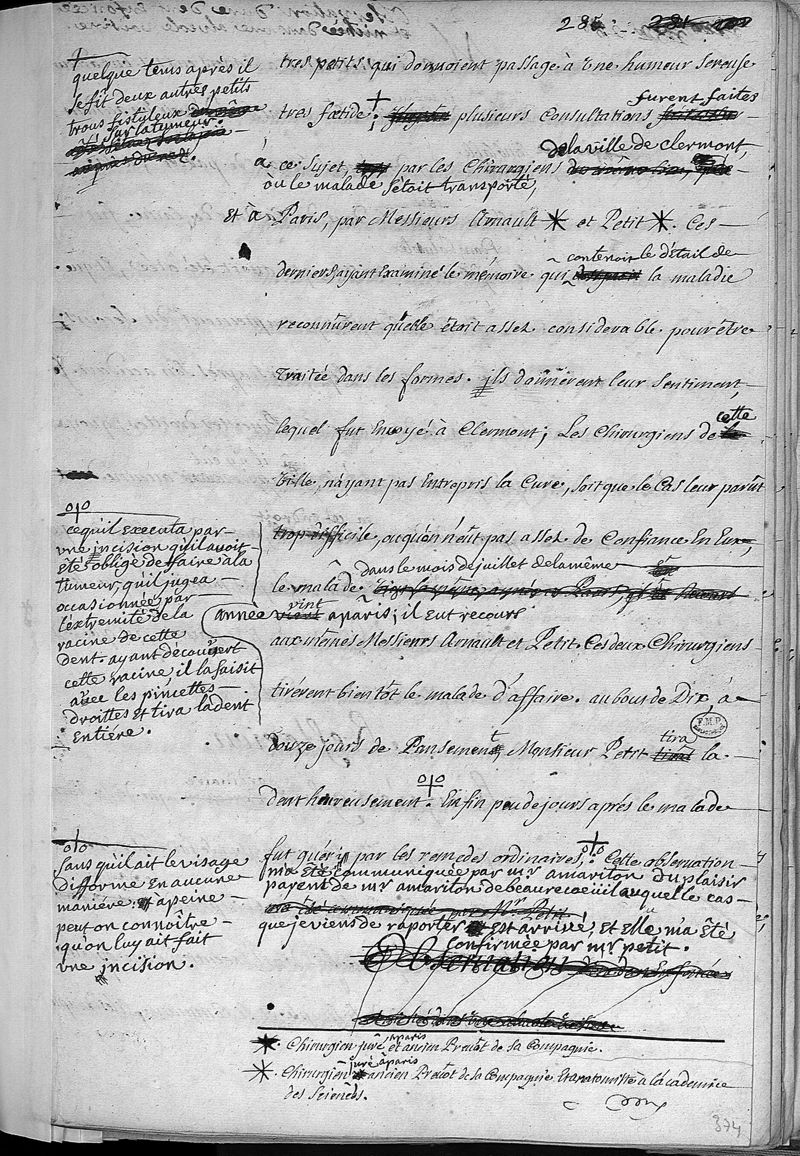 285
+
quelque tems après il
se fit deux autres petits
trous fistuleux
sur la tumeur.
tres petits qui donnoient passage à une humeur sereuse
furent faites
tres fœtide + plusieurs Consultations
de la ville de clermont,
à ce sujet, par les Chirurgiens
où le malade s'étoit transporté,
et à Paris, par Messieurs Arnault * et Petit *. Ces
contenoit le détail de
derniers ayant Examiné le mémoire qui la maladie
reconnûrent qu'elle étoit assez considerable pour être
Traitée dans les formes. ils donnèrent leur Sentiment,
cette
lequel fut Envoyé à Clermont; Les Chirurgiens de
Ville, n'ayant pas Entrepris la Cure, soit que le Cas leur parût
trop difficile, ou qu'on n'eût pas assez de Confiance En Eux,
dans le mois de juillet de la même
le malade
année vint à paris; il eut recours
aux mêmes Messieurs Arnault et Petit. Ces deux Chirurgiens
tirérent bientôt le malade d'affaire. au bout de Dix, à
tira
douze jours de Pansement, Monsieur Petit la
dent heureusement. Enfin peu de jours aprés le malade
fut guéri par les remedes ordinaires. Cette observation
m'a été communiquée par mr amariton du plaisir
parent de mr amariton de beaurecoeüil auquel le cas
que je viens de raporter est arrivé, et elle m'a été
confirmée par mr petit.
ce qu'il executa par
une incision qu'il avoit
été obligé de faire à la
tumeur, qu'il jugea
occasionnée par
l'extremité de la
racine de cette
dent. ayant découvert
cette racine, il la saisit
avec les pincettes
droittes et tira la dent
Entiére.
sans qu'il ait le visage
difforme en aucune
maniére; à peine
peut on connoître
qu'on luy ait fait
une incision.
* Chirurgien juré à paris et ancien Prevôt de sa Compagnie.
* Chirurgien juré à paris ancien Prevôt de sa Compagnie et anatomiste à l'academie
des Sciences.
F.M.P.
374